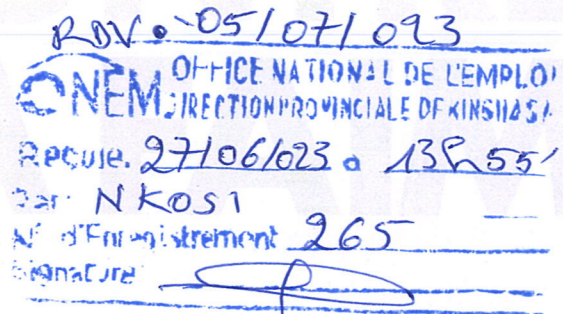 RDV. 05/07/023
ONEM OFFICE NATIONAL DE L'EMPLOI
DIRECTION PROVINCIALE DE KINSHASA
Reçule. 27/06/023 à 13h55'
Par: NKOSI
N° d'Enregistrement 265
Signature